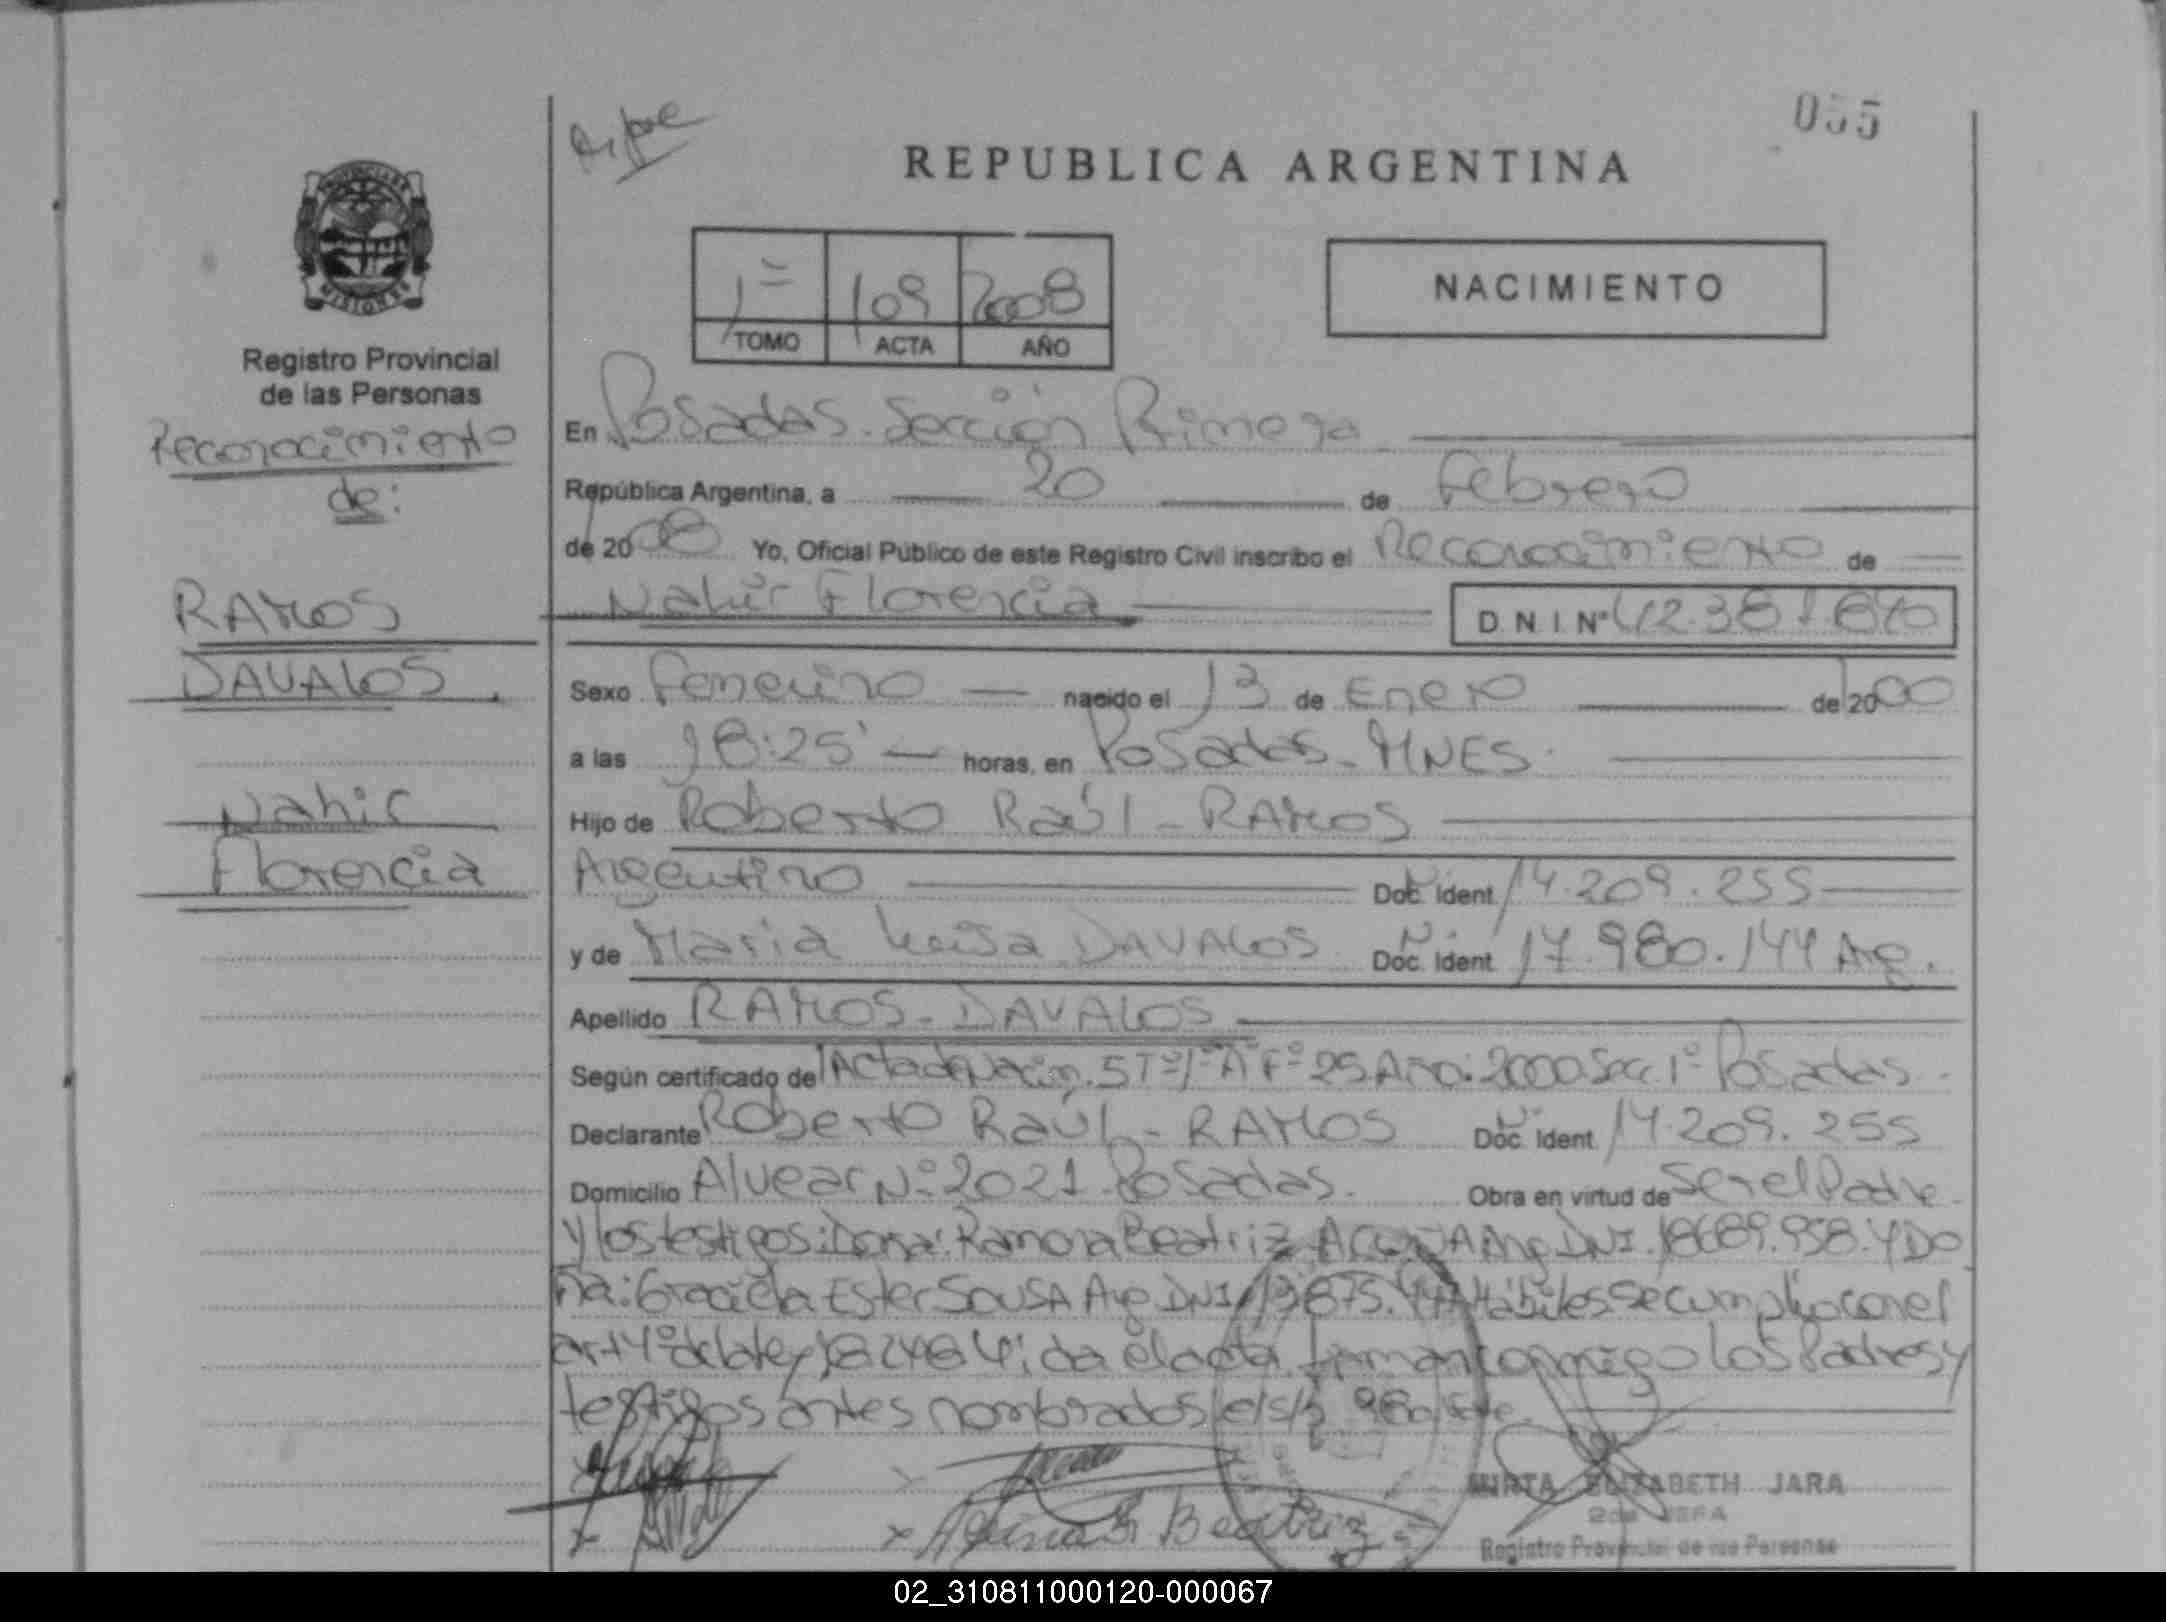 055
REPUBLICA ARGENTINA
PROVINCIA DE
MISIONES
1º 109 2008
TOMO ACTA AÑO
NACIMIENTO
Registro Provincial
de las Personas
Reconocimiento
de:
RAMOS
DAVALOS
Nahir
Florencia
En Posadas. Sección Primera
República Argentina, a 20 de Febrero
de 2008 Yo, Oficial Público de este Registro Civil inscribo el Reconocimiento de
Nahir Florencia D.N.I. Nº 42.381.870
Sexo Femenino nacido el 13 de Enero de 2000
a las 18:25' horas, en Posadas - MNES.
Hijo de Roberto Raúl - RAMOS
Argentino Doc. Ident. 14.209.255
y de Maria Luisa DAVALOS Doc. Ident. 17.980.144 Arg.
Apellido RAMOS - DAVALOS
Según certificado de Acta de Año: 2000 Secc. 1º Posadas.
Declarante Roberto Raúl - RAMOS Doc. Ident. 14.209.255
Domicilio Alvear Nº 2021 Posadas. Obra en virtud de ser el Padre
y los testigos: Doña: Ramona Beatriz ACUÑA Arg DNI. 18689.958. Y Do
ña: Graciela Ester SOUSA Arg DNI Hábiles se cumplió con el
art 4º de la ley 18248 Leida el acta firman conmigo los Padres y
testigos antes nombrados
Acuña R. Beatriz
MIRTA ELIZABETH JARA
Registro Provincial de las Personas
02_310811000120-000067